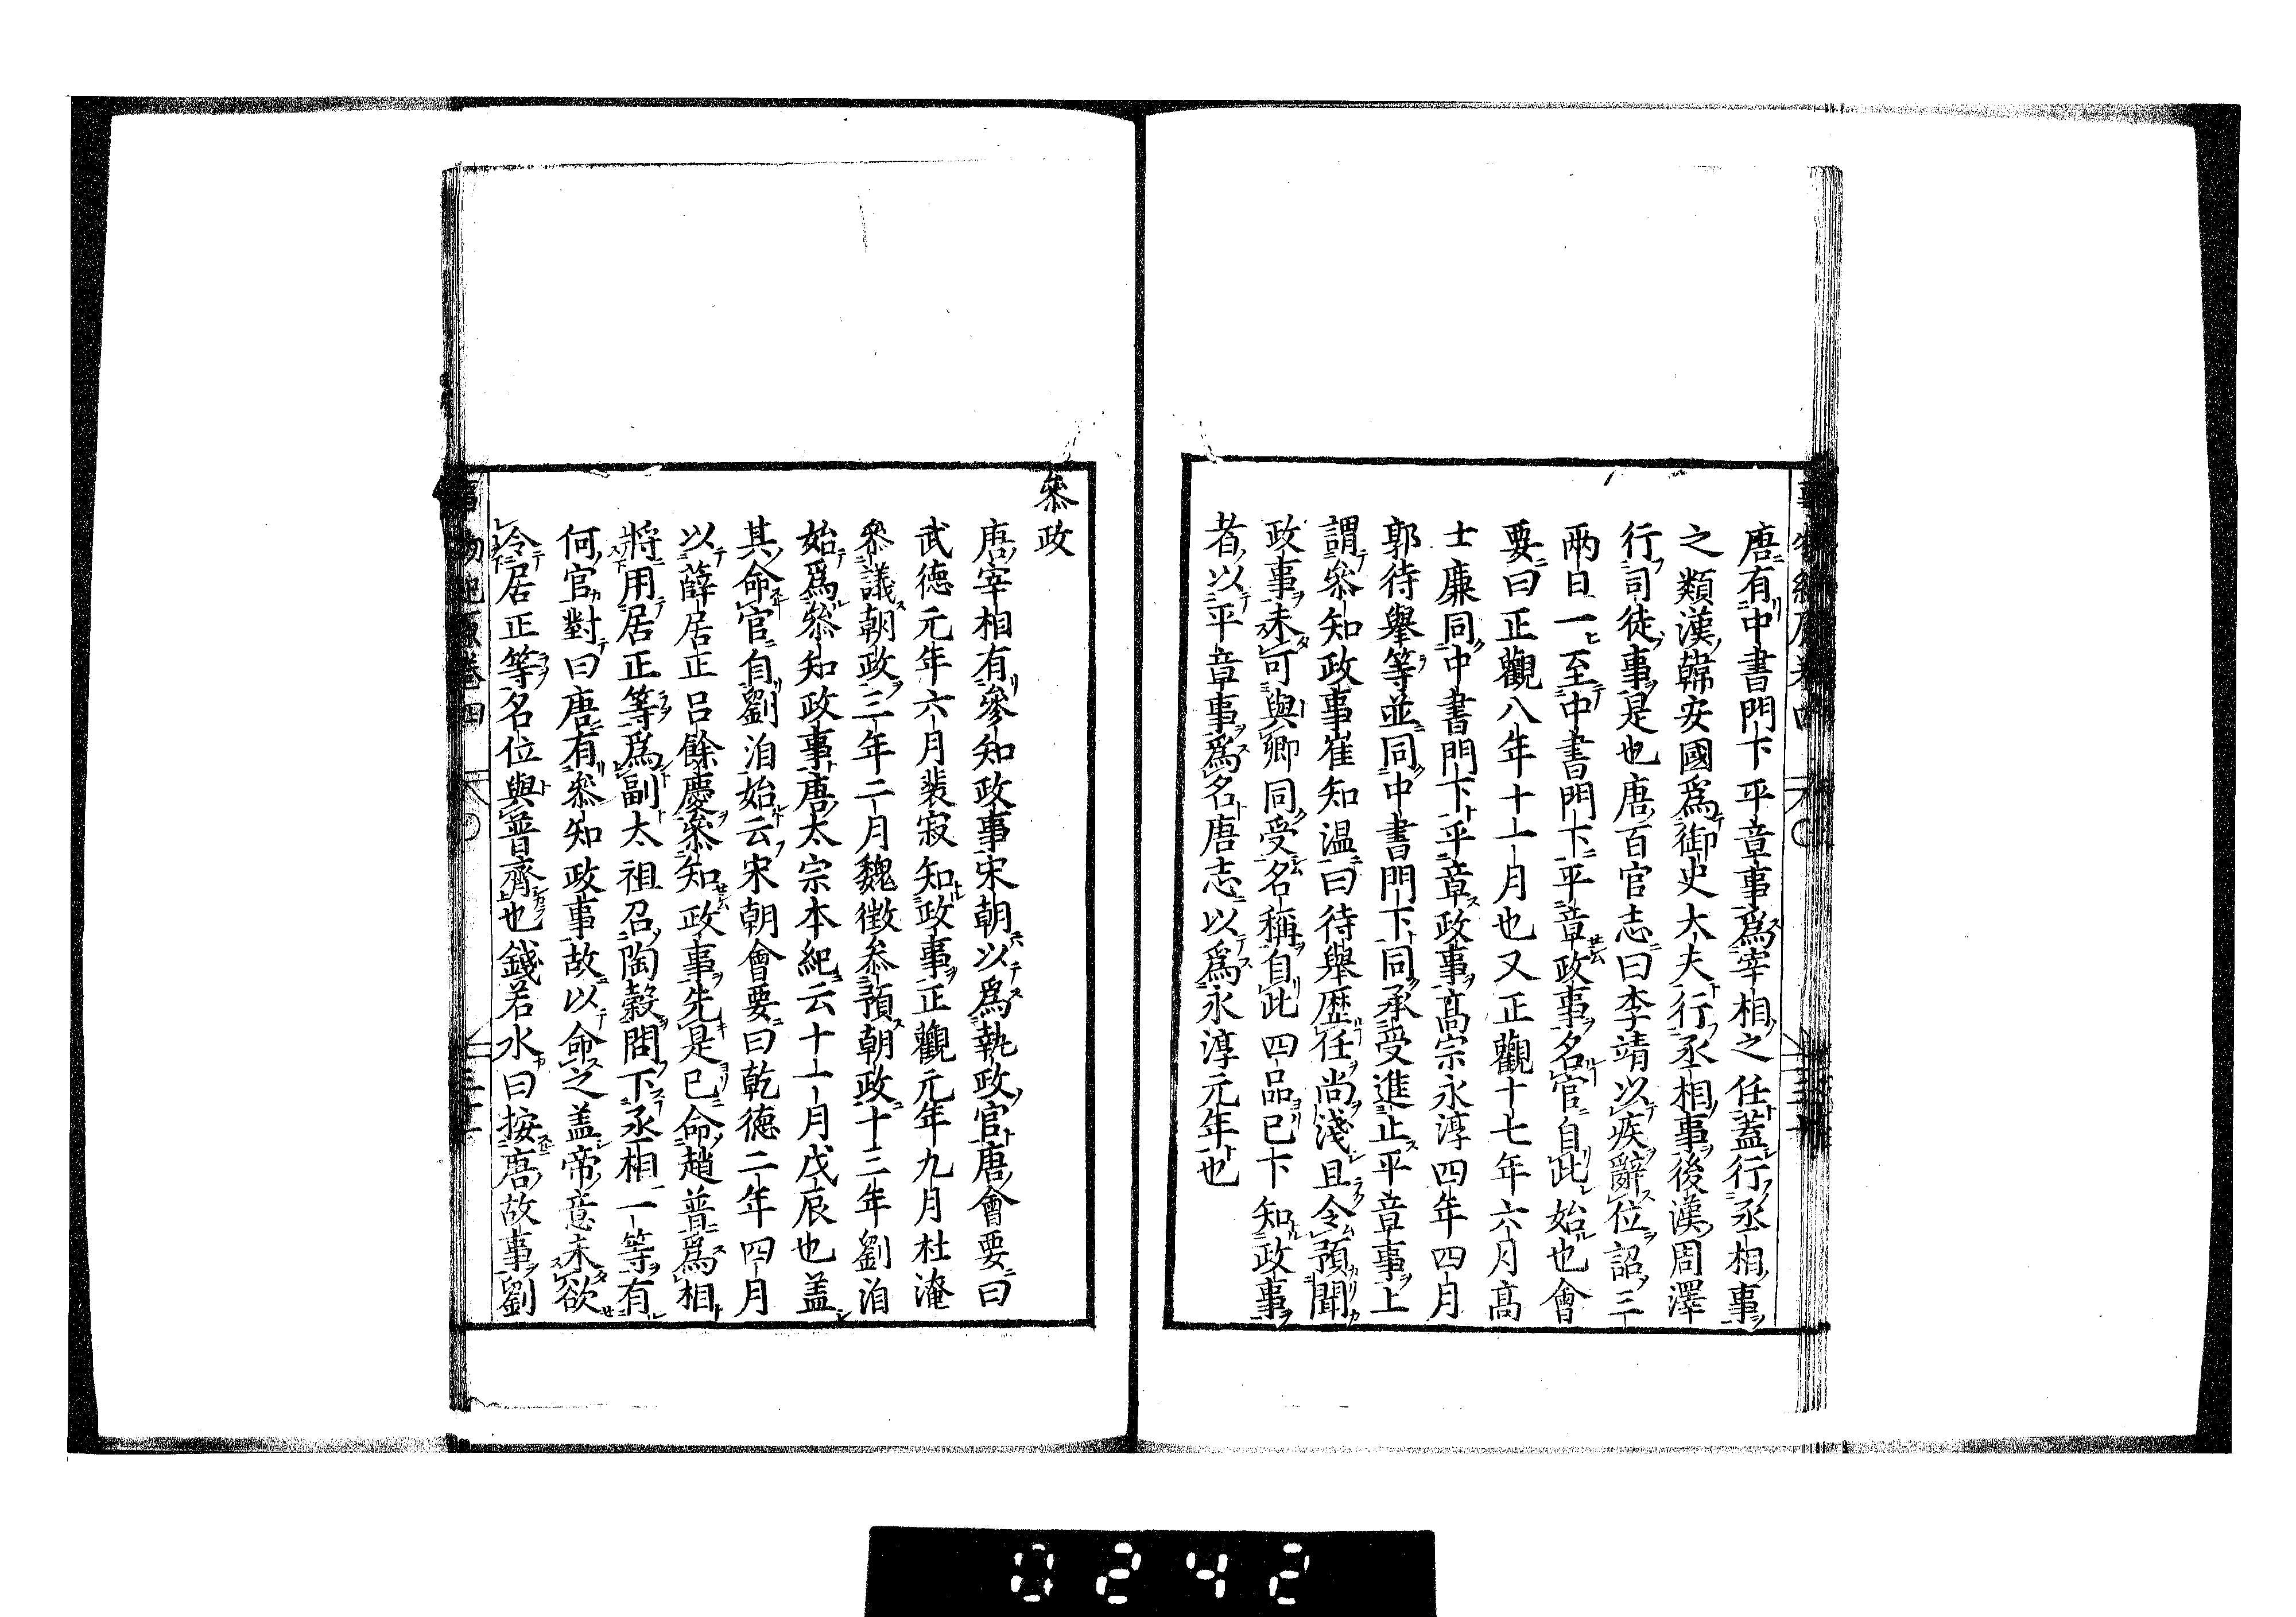 唐有中書門下平章事爲宰相之任蓋行丞相事
之類漢韓安國爲御史大夫行丞相事後漢周澤
行司徒事是也唐百官志曰李靖以疾辭位詔三
兩日一至中書門下平章政事名官自此始也會
要曰正觀八年十一月也又正觀十七年六月高
士廉同中書門下平章政事高宗永淳四年四月
郭待舉等並同中書門下同承受進止平章事上
謂參知政事崔知温曰待舉歷任尚淺且令預聞
政事未可與卿同受名稱自此四品已下知政事
者以平章事爲名唐志以爲永淳元年也
叅政
唐宰相有參知政事宋朝以爲執政官唐會要曰
武德元年六月裴寂知政事正觀元年九月杜淹
叅議朝政三年二月魏徴叅預朝政十三年劉洎
始爲叅知政事唐太宗本紀云十一月戊辰也盖
其命官自劉洎始云宋朝會要曰乾德二年四月
以薛居正呂餘慶叅知政事先是已命趙普爲相
將用居正等爲副太祖召陶穀問下丞相一等有
何官對曰唐有叅知政事故以命之盖帝意未欲
令居正等名位與普齊也錢若水曰按唐故事劉
事物紀原卷四
0242